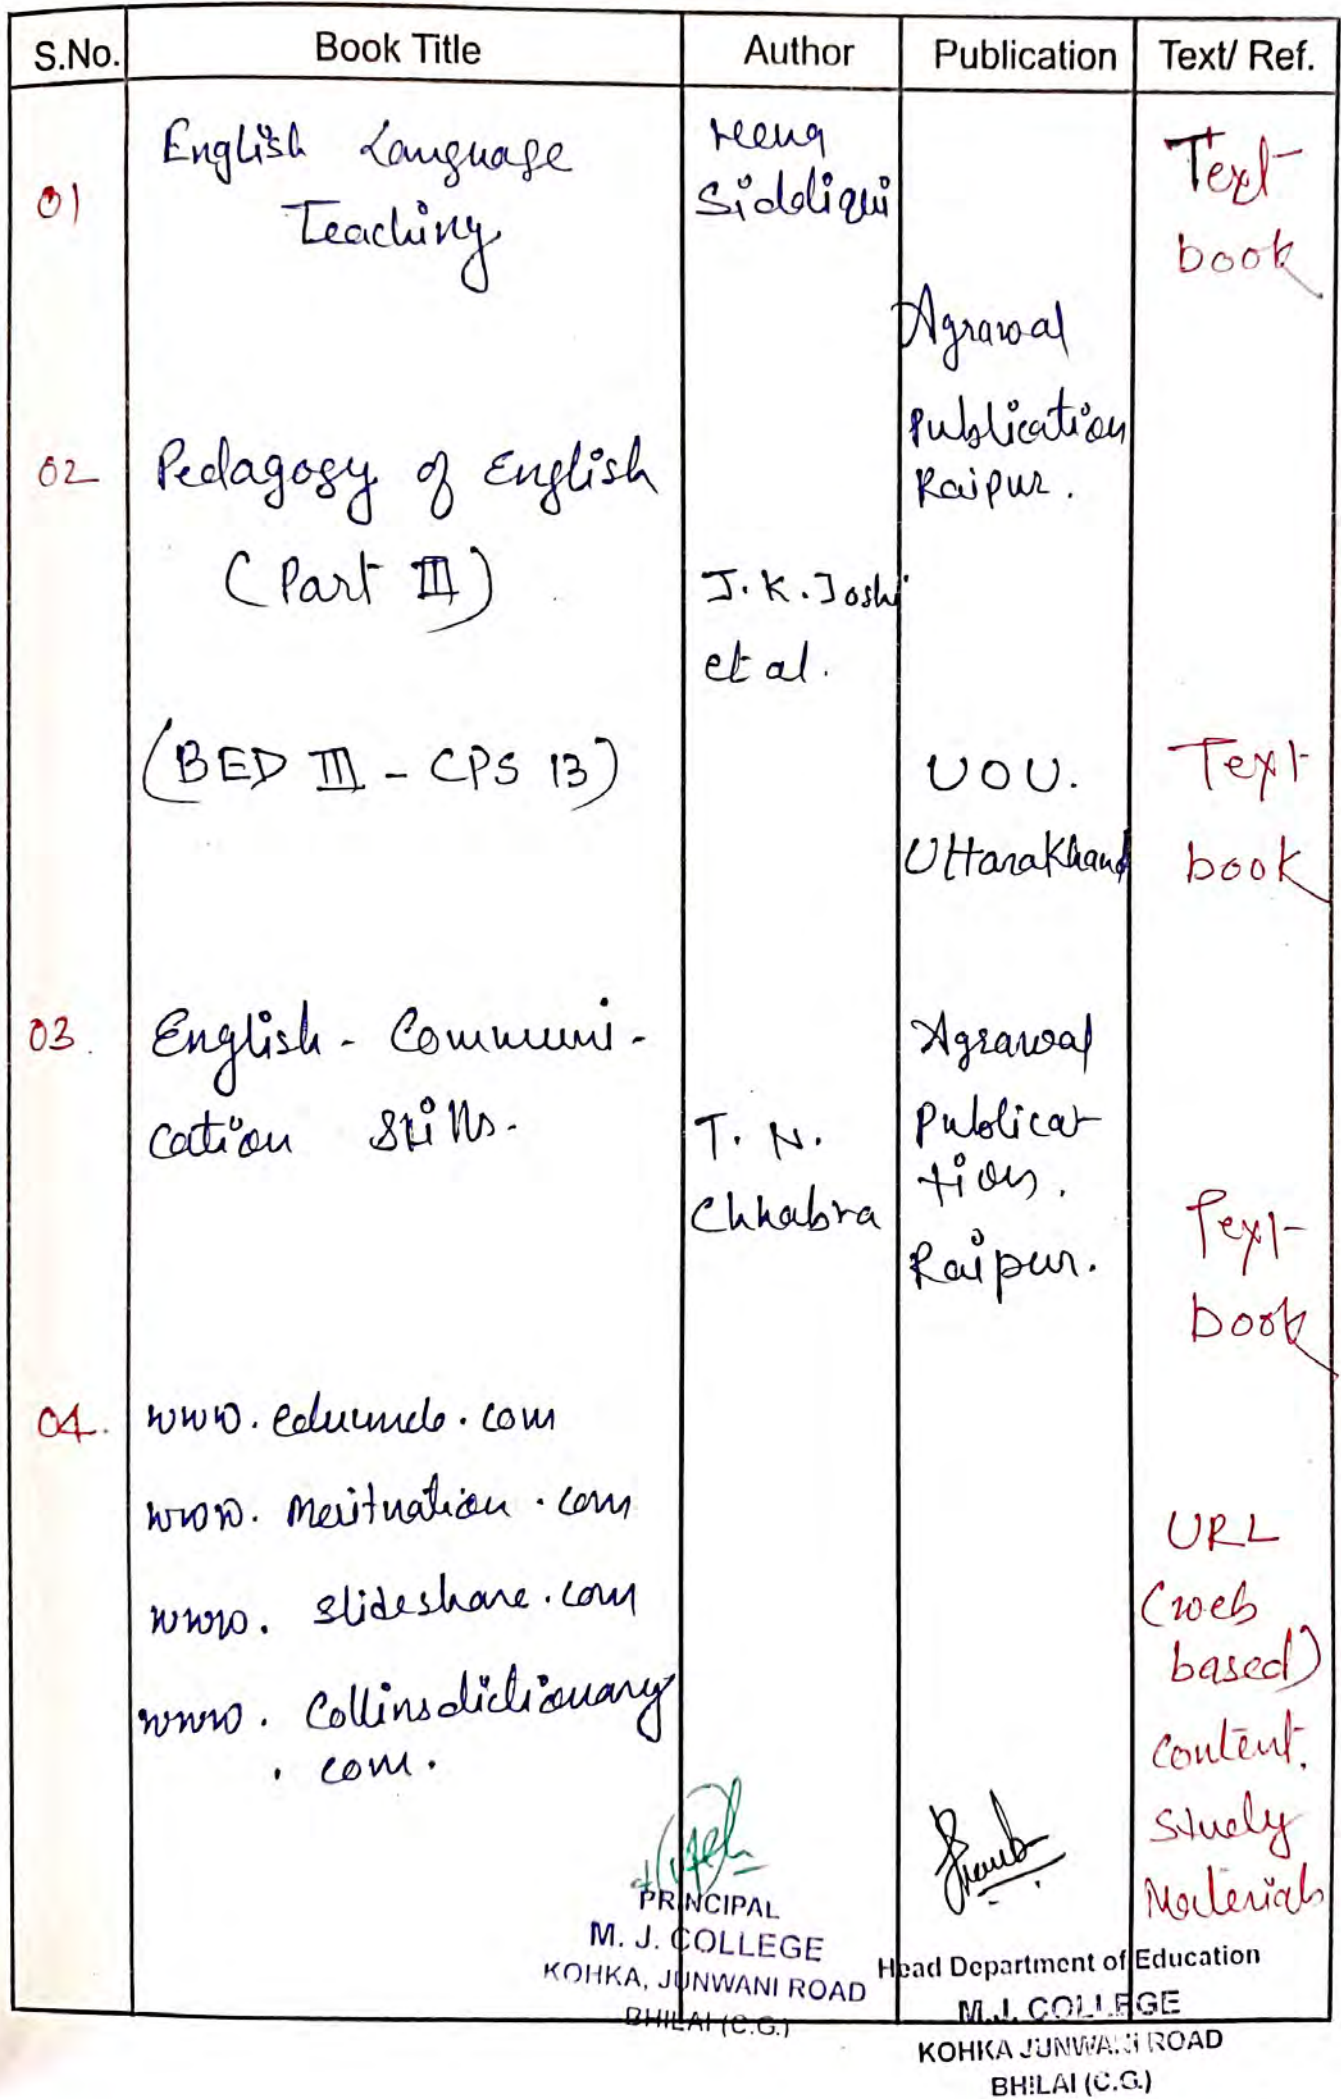 S.No. Book Title Author Publication Text/ Ref.
01 English Language Teaching
Siddiqui
Text book
Agrawal
Publication
Raipur.
02 Pedagogy of English
(Part III)
J.K.Joshi
et al.
(BED III - CPS 13)
UOU.
Uttarakhand
Text
book
03. English - Communi-
cation Skills.
T. N.
Chhabra
Agrawal
Publicat
tion.
Raipur.
Text
book
04. www.
www. meritnation.com
www. slideshare.com
www. Collinsdictionary
.com.
URL
(web
based)
content.
Study
Materials
PRINCIPAL
M. J. COLLEGE
KOHKA, JUNWANI ROAD
BHILAI (C.G.)
Head Department of Education
M.J. COLLEGE
KOHKA JUNWANI ROAD
BHILAI (C.G.)